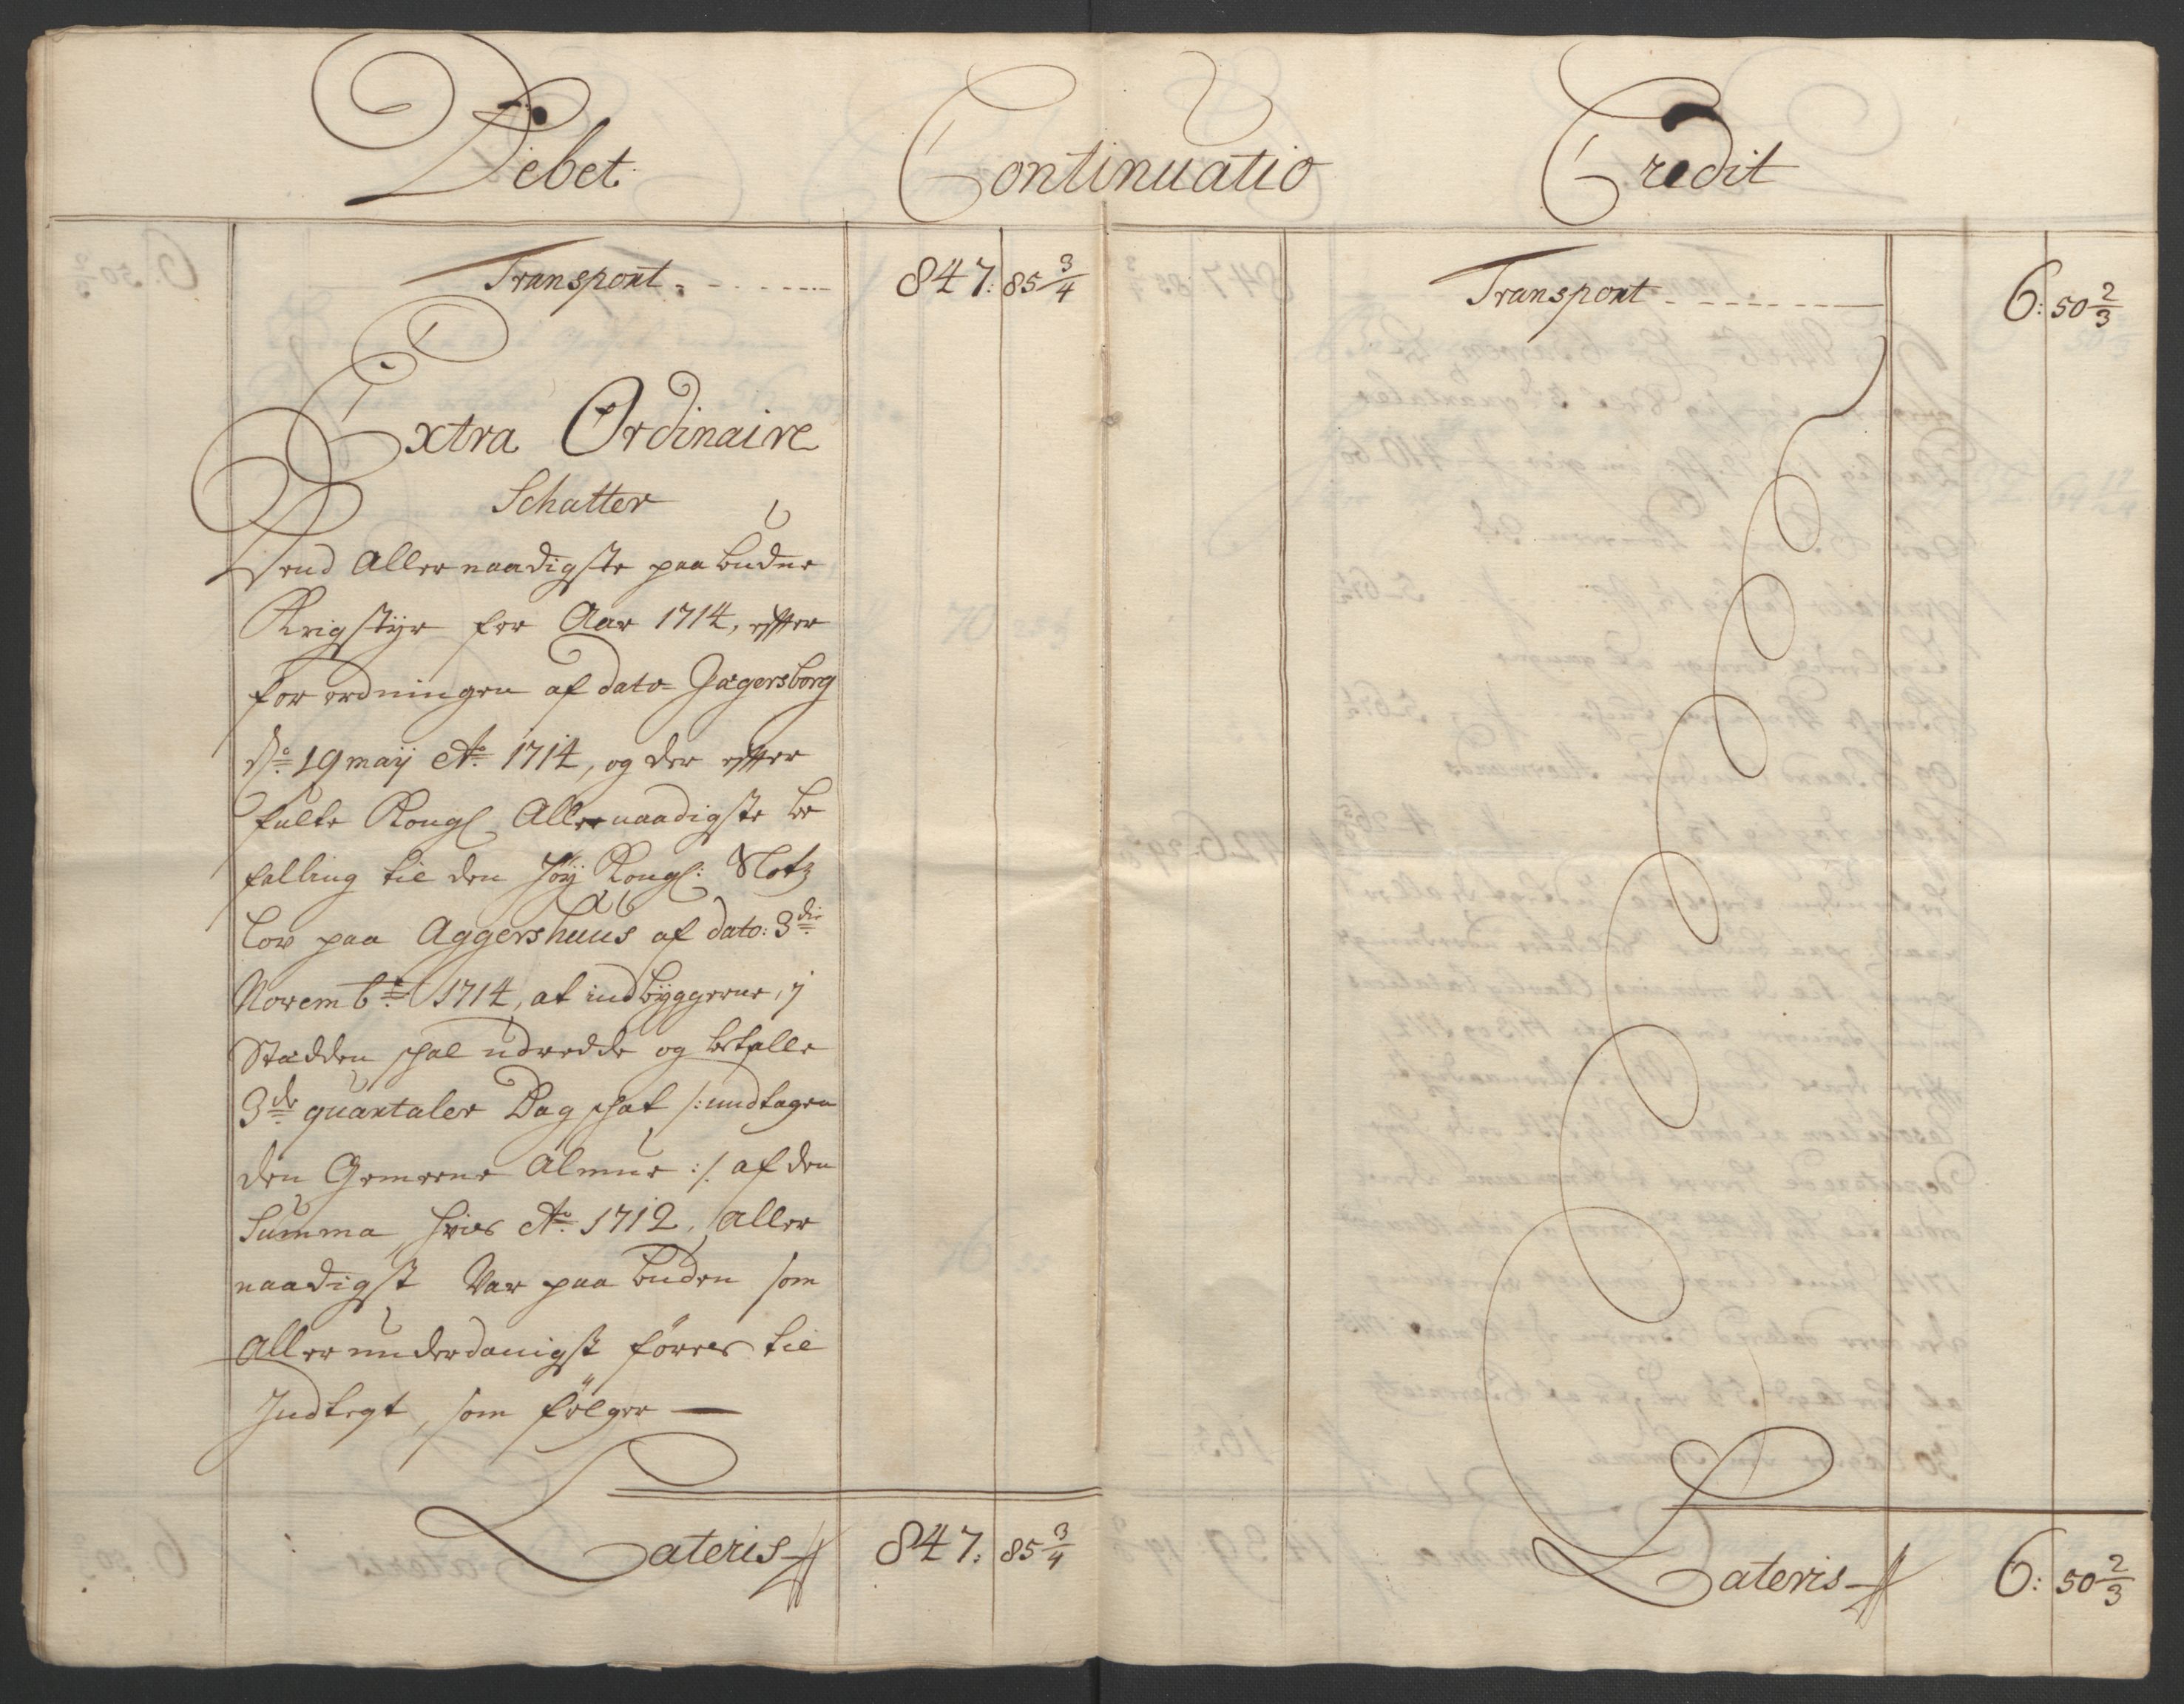 Debet Continuatio Credit
Transport 847: 85 3/4
Extra Ordinaire
Schatter
Dend Allernaadigste paabudne
Krigstÿr for Aar 1714, effter
forordningen af dato Jægersborg
d: 19 maÿ Ao 1714, og der effter
fulte Kongl Allernaadigste be
falling til den Høÿ Kongl: Slotz
lov paa Aggershuus af dato: 3die
Novembr 1714, at indbÿggerne, j
Stædden schal udredde og betalle
3de quartaler Dagschat /: undtagen
den Gemeene Almue :/ af den
Summa hvis Ao 1712, Aller
naadigst Var paabuden som
Allerunderdanigst förres til
Indtegt, som fölger —
Lateris 847: 85 3/4
Transport 6: 50 2/3
Lateris 6: 50 2/3